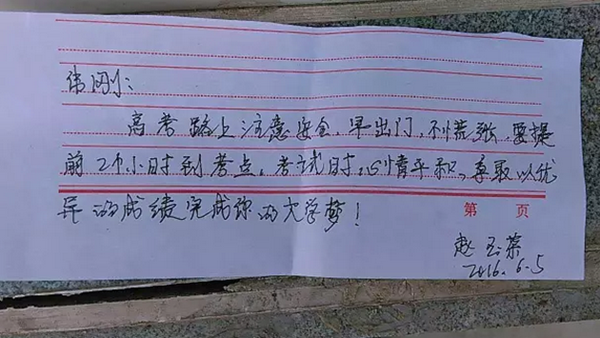 伟刚：
高考路上注意安全，早出门，不慌张，要提
前2个小时到考点，考试时，心情平和，争取以优
异的成绩完成你的大学梦！
第 页
赵玉荣
2016.6.5